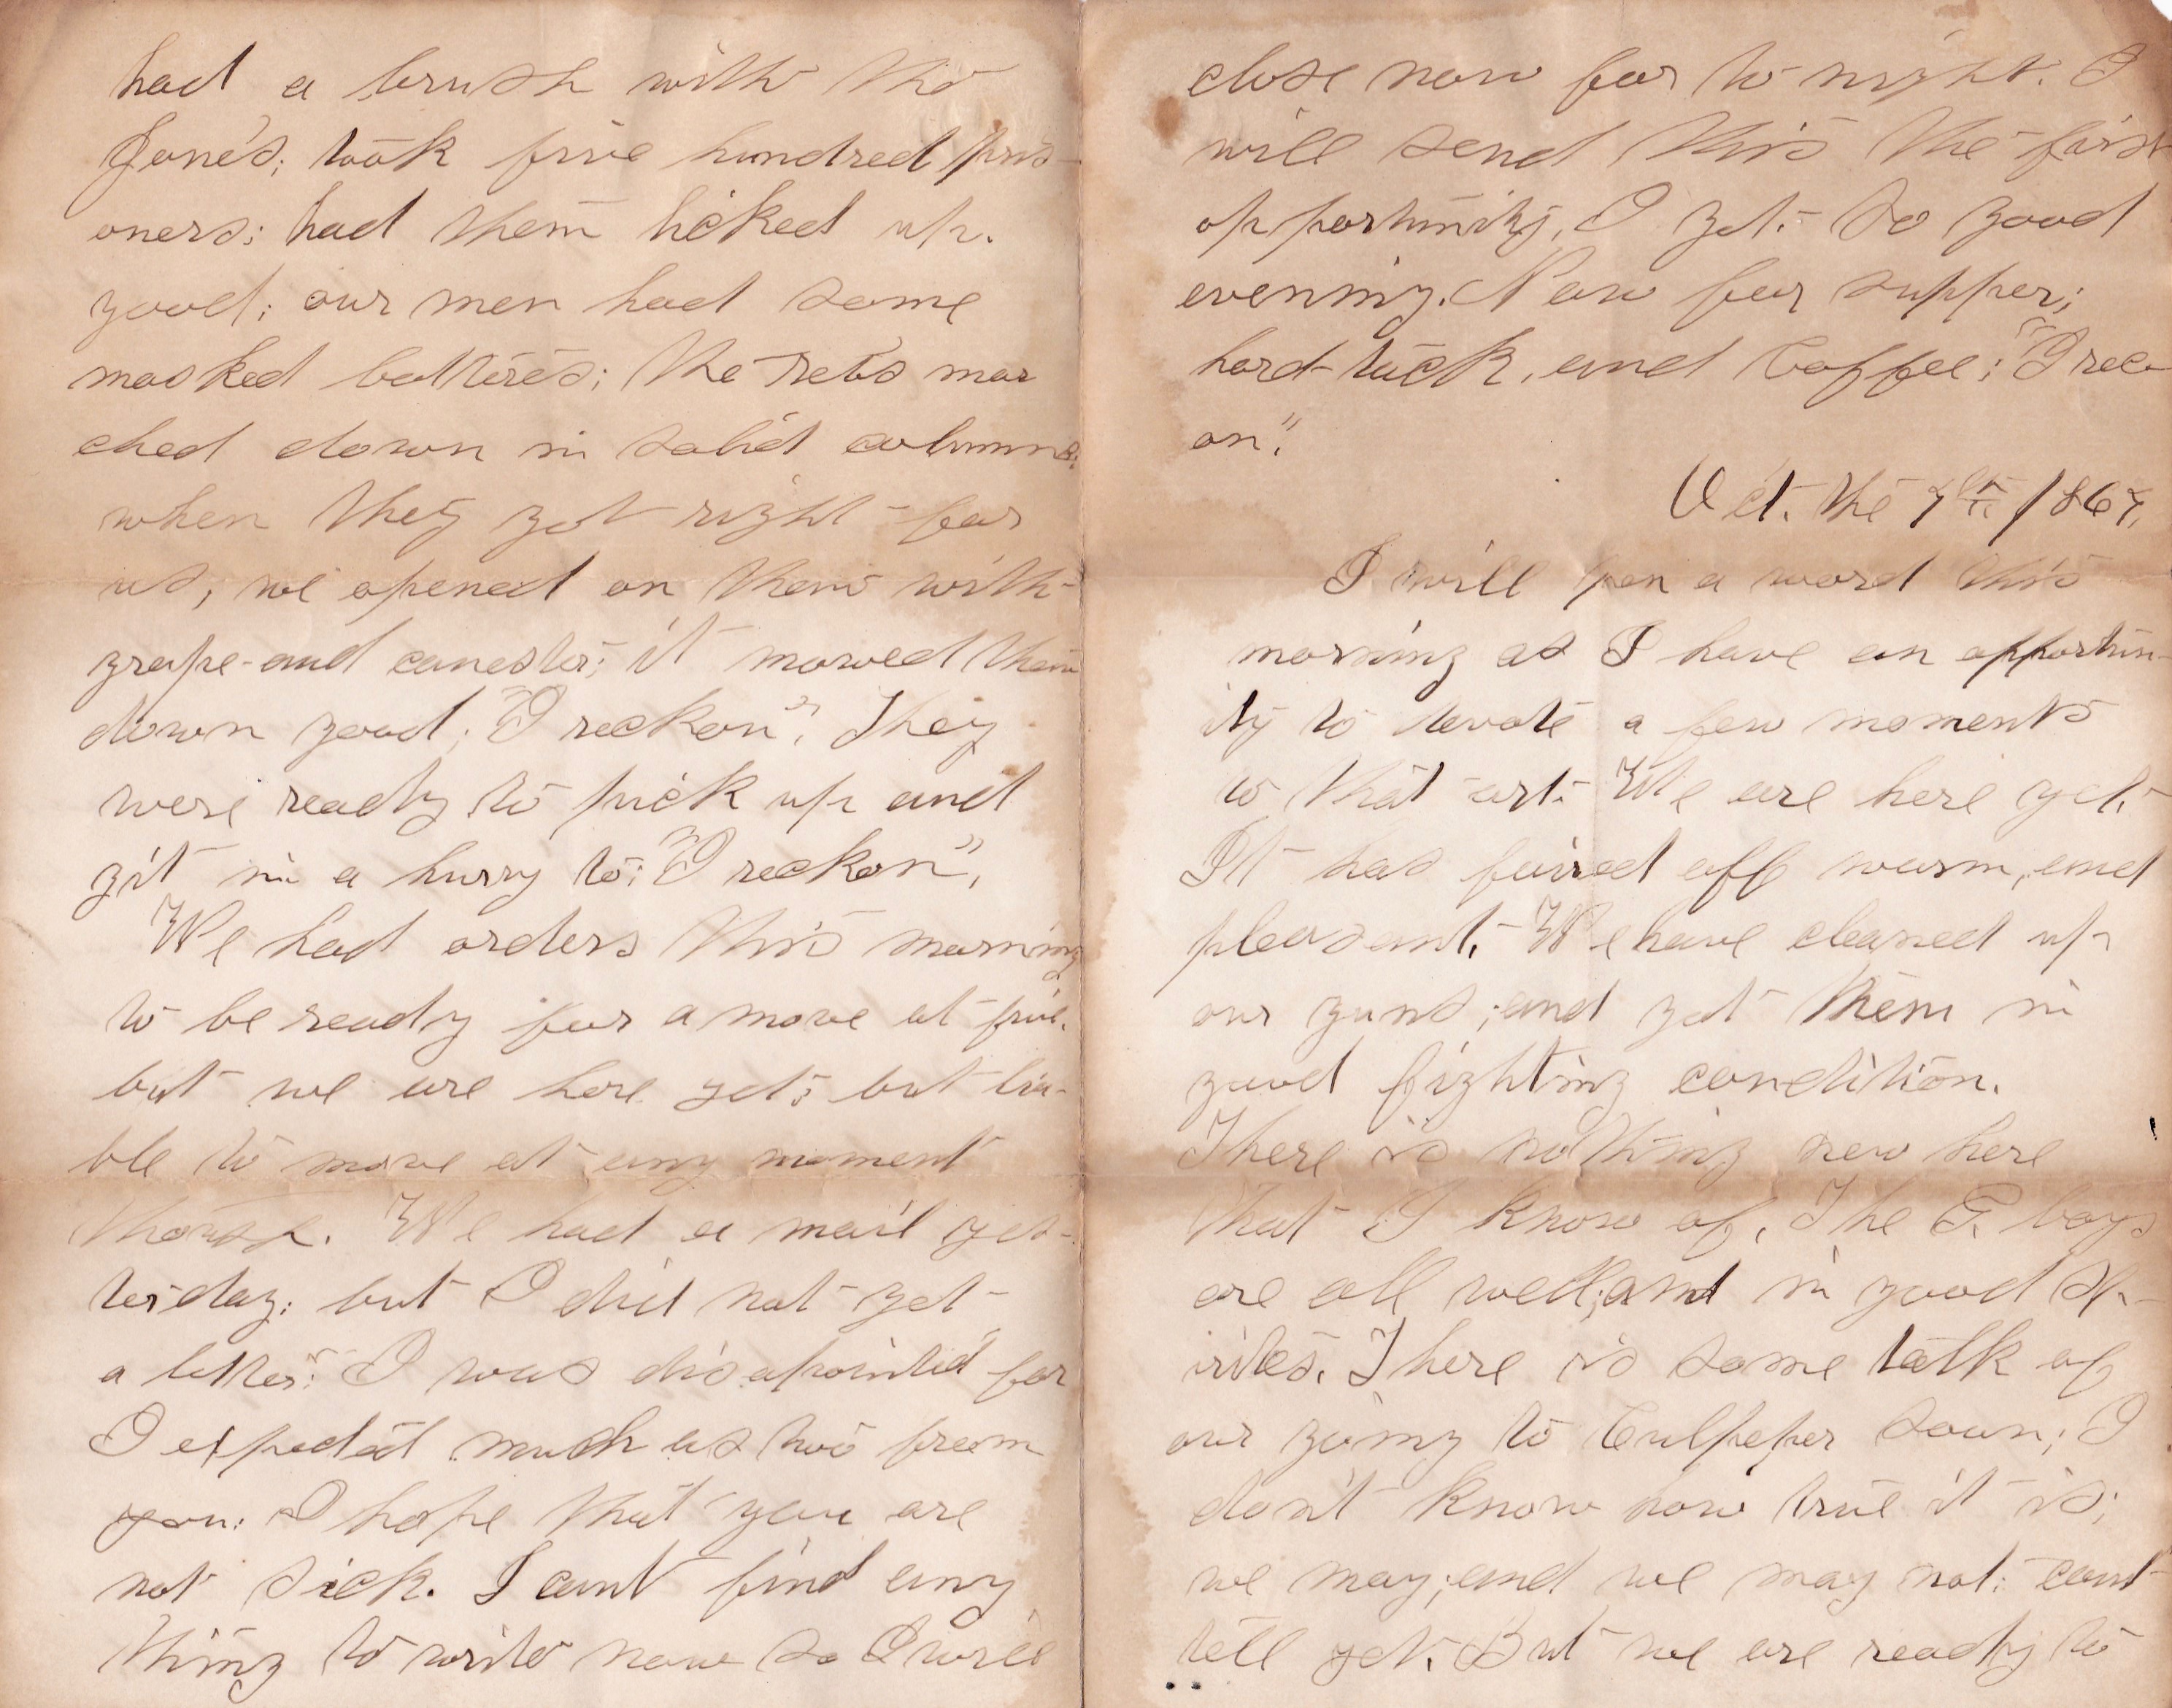 had a brush with the
Jones; took five hundred pris-
oners; had them licked up.
good; our men had some
masked batteres; the rebs mar
ched down in solid columns;
when they got right for
us, we opened on them with
grape and canester; it mowed them
down good; "I reckon", They
were ready to pick up and
git in a hurry to; "I reckon",
We had orders this morning
to be ready for a move at five.
but we are here yet; but lia-
ble to move at any moment
those. We had a mail yes-
terday; but I did not get
a letter; I was disapointed for
I expected much as two from
you; I hope that you are
not sick. I cant find any
thing to write now so I will
close now for to night. I
will send this the first
opportunity, I get. So good
evening. Now for supper;
hard-tack, and Coffee; "I reck
on".
Oct. the 7th /864,
I will pen a word this
morning as I have an opportun-
ity to devote a few moments
to that art. We are here yet.
It has faired off warm, and
pleasant. We have cleaned up
our guns; and got them in
good fighting condition.
There is nothing new here
that I know of. The P. boys
are all well; and in good sp-
irites. There is some talk of
our going to Culpeper soon; I
don't know how true it is;
we may; and we may not; cant
tell yet. But we are ready to